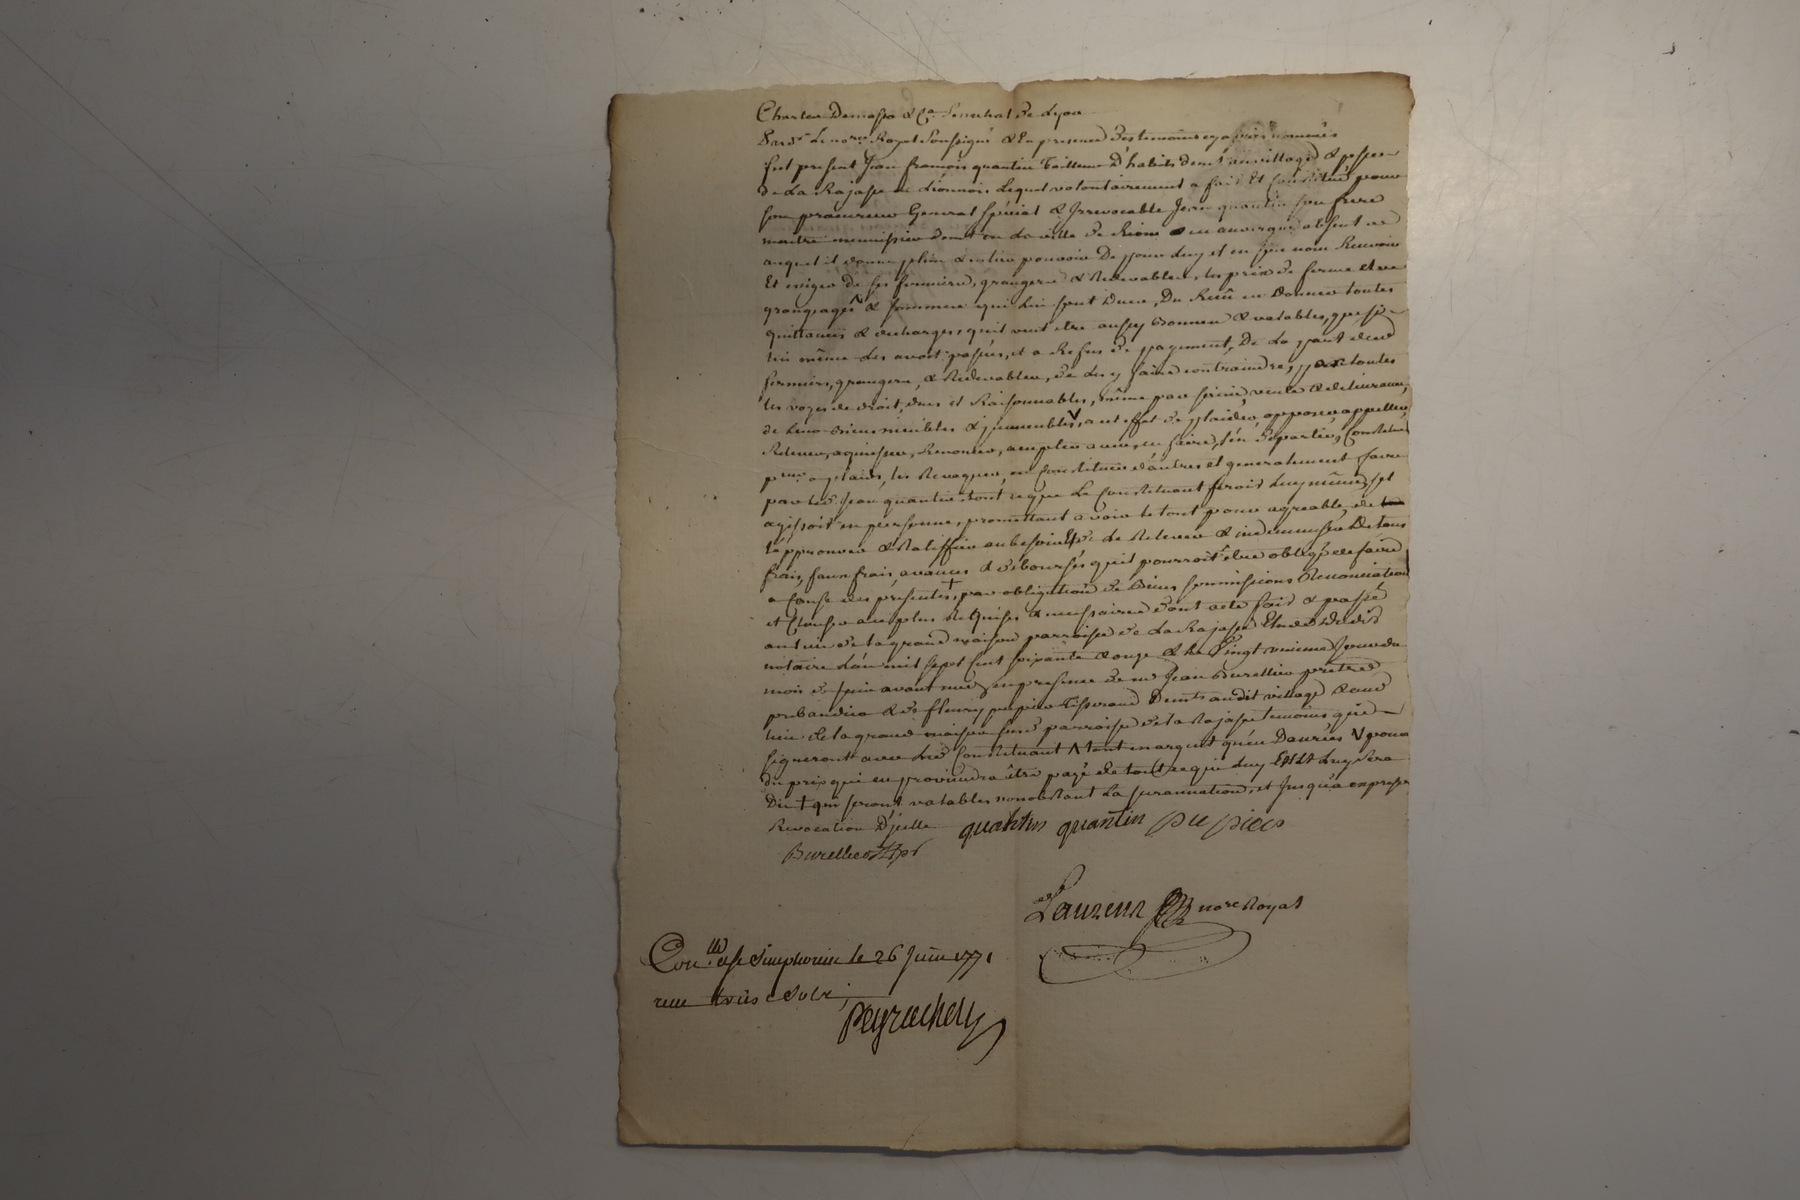 Charles Demasso &Ca Senechal de Lyon
Pardt Le nore Royal Soussigné & En presence des temoins cy après nommés
fut present Jean françois quantin Tailleur D'habits demt au village & paroisse
de La Rajasse en Lionnois Lequel volontairement a fait Et Constitué pour
son procureur General Spécial & Irrevocable Jean quantin son frere
maitre menuisier demt en La ville de Riom en auvergne absent
auquel il donne plein & entier pouvoir De pour Luy et en son nom Recevoir
Et exiger de ses fermiers, grangers & Redevables, les prix de ferme et de
grangeages & sommes qui Lui sont Dues, Du Reçû en Donner toutes
quittances & decharges, qu'il veut etre aussy Bonnes & valables, que si
lui même Les avoit passées, et a Refus de payement, De La part desd
fermiers, grangers, & Redevables, de Les y faire contraindre, par toutes
les voyes de droit, dues et Raisonnables, même par saisie, vente & delivrance,
de Leurs Biens meubles & immeubles V, a cet effet de plaider, opposer, appeller,
Relever, acquiescer, Renoncer, en faire, s'en Departir, Constituer
pour plaids, les Revoquer, en Constituer d'autres et generalement faire
par led Jean quantin tout ce que Le Constituant feroit Luy même, s'il
agissoit en personne, promettant avoir le tout pour agreable, de
L'approuver & Ratiffier au besoin & de Le Relever & indemniser De tous
frais, faux frais, avances & debourses qu'il pourroit être obligé de faire
a Cause des presentes +, par obligation de Biens soumissions Renonciations
et Clauses au plus Requises & necessaires dont acte fait & passé
au lieu de la grand maison parroisse de La Rajasse Etude dud
notaire L'an mil sept cent soixante & onze & Le Vingt unieme Jour du
mois de Juin avant midy en presence de mr Jean Burellier prêtre
prebandier & de fleury pupier Tisserand Demts audit village & aud
lieu de la grand maison susd parroisse de la Rajasse temoins qui
signeront avec Led Constituant V pour
du prix qui en proviendra être payé de tout ce qui Luy Est & Luy sera
Du + qui seront valables nonobstant La surannation, et Jusqu'a expresse
Revocation D'icelle quantin quantin pu piers
Burellier ptre
Laurens nore Royal
Conlé a St Simphorien le 26 Juin 1771
reçu treize sols,
Peyrachon